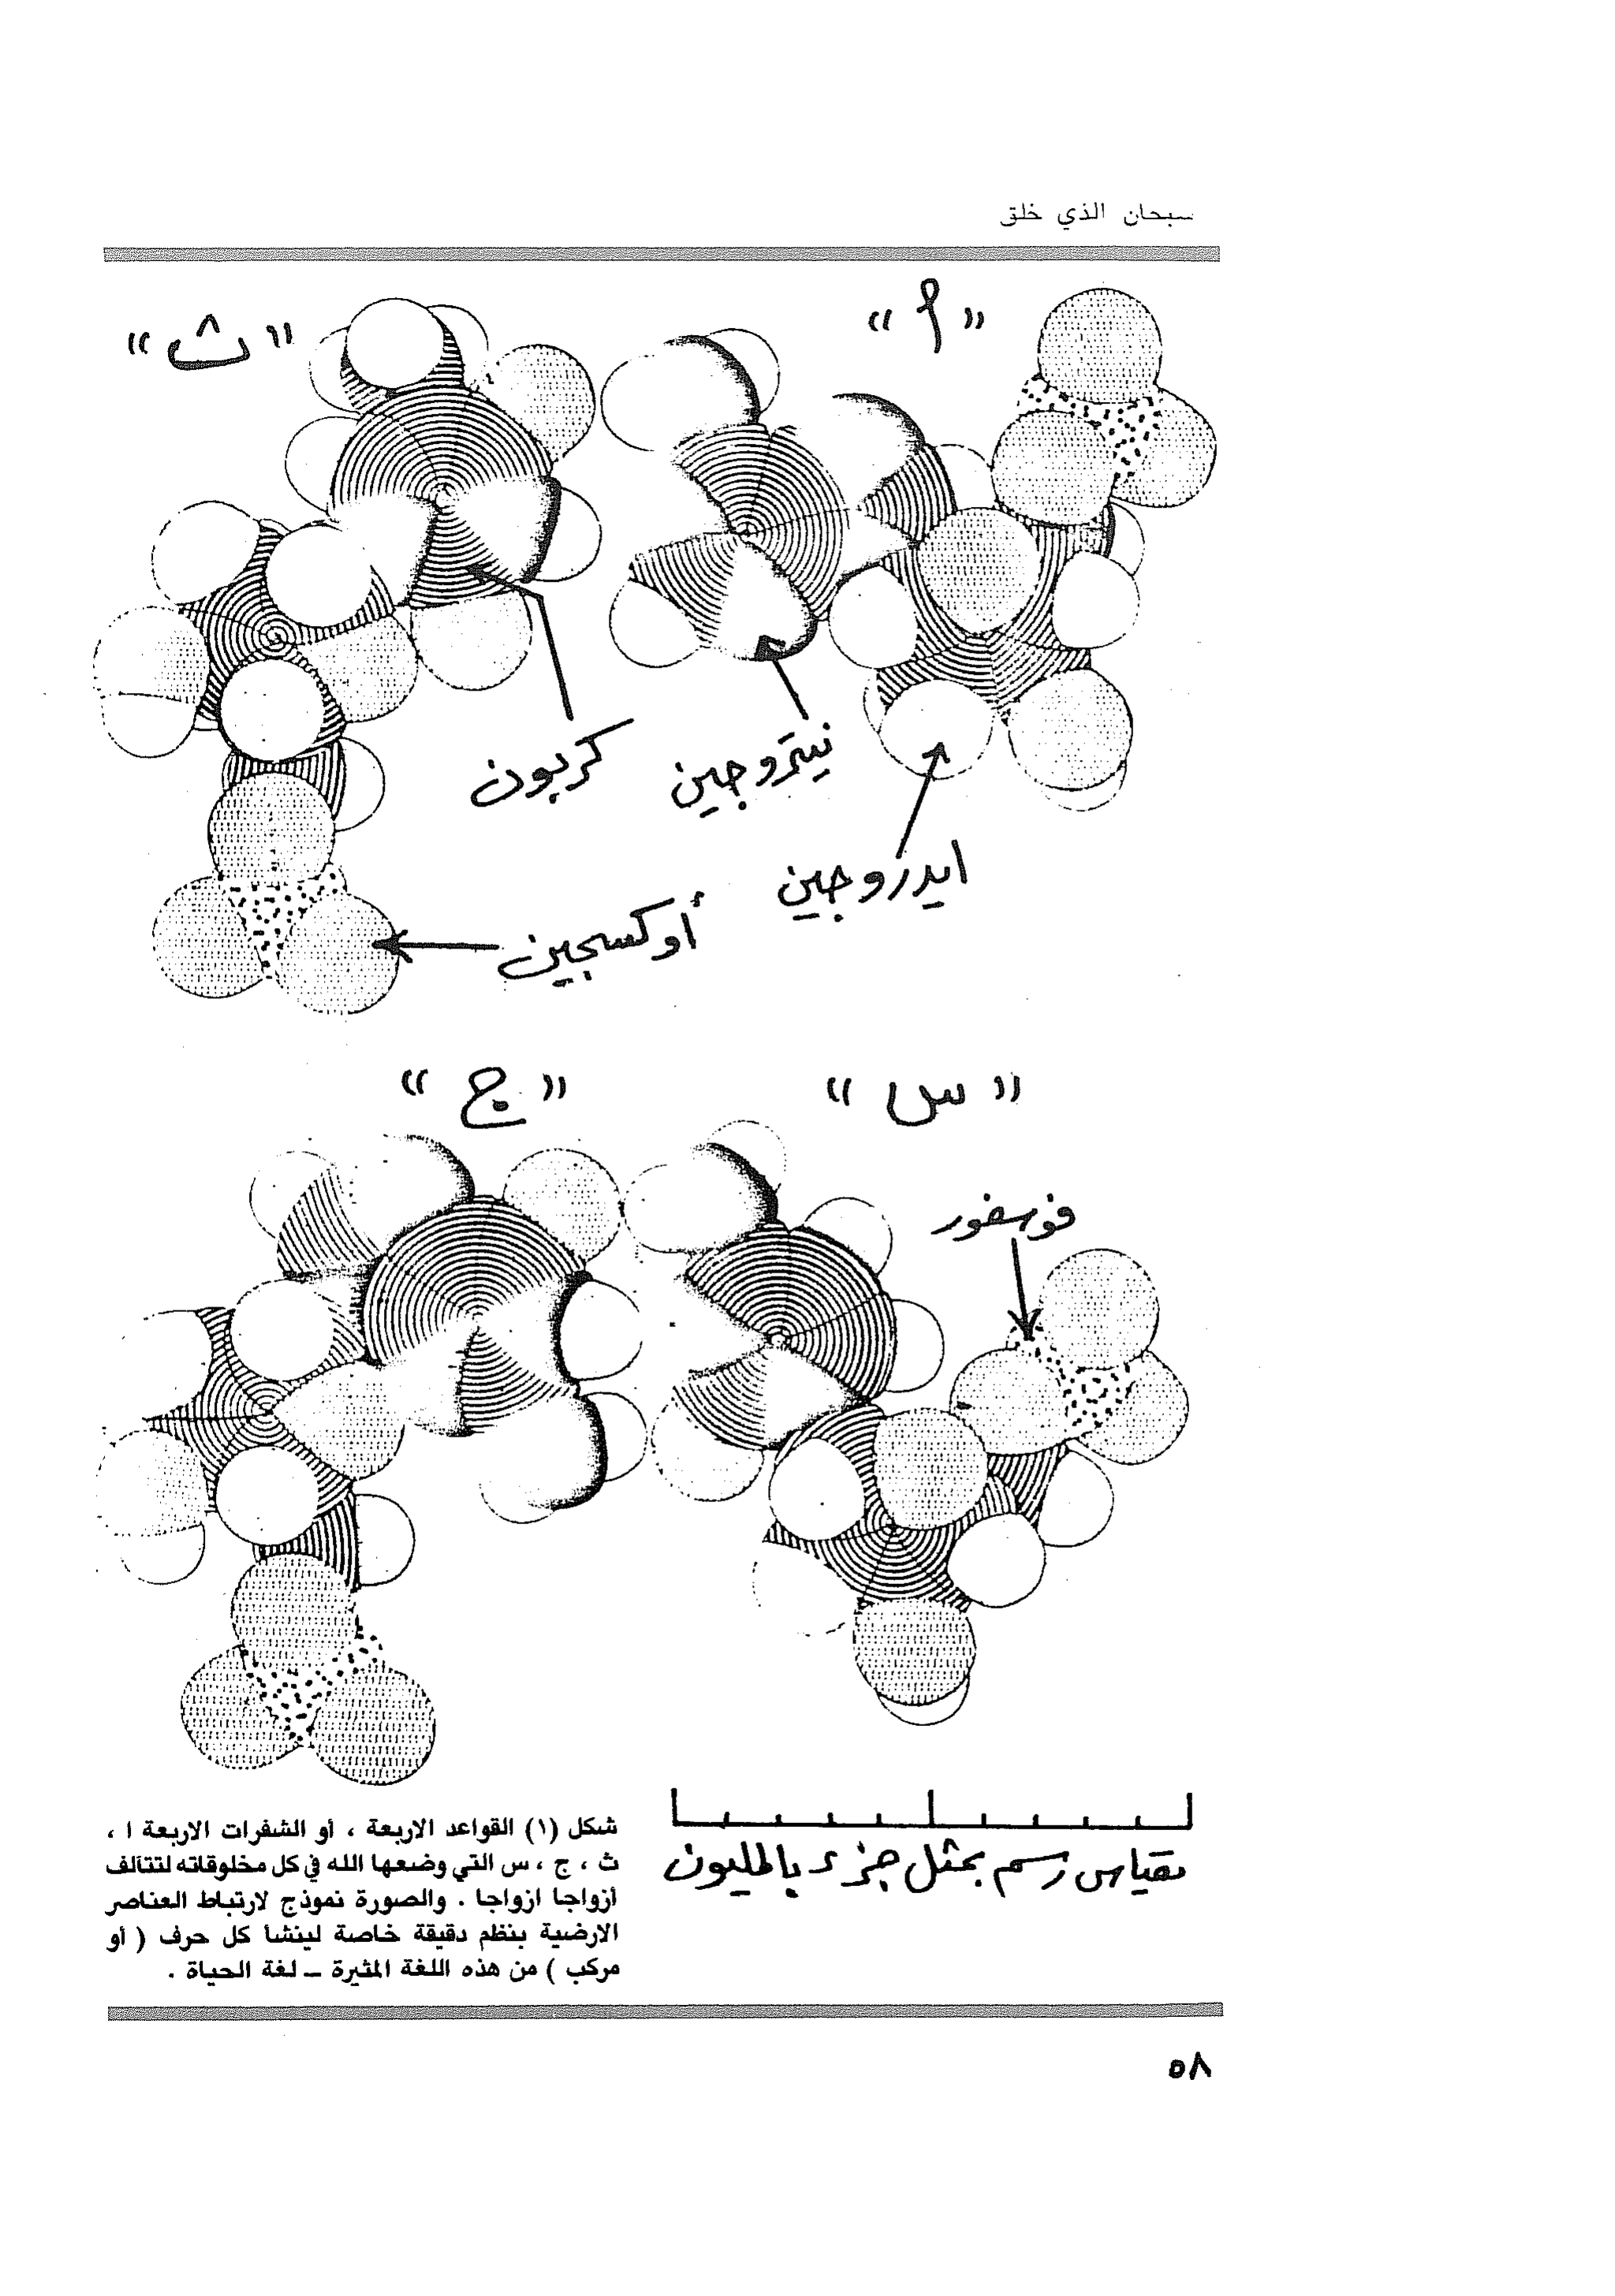 سبحان الذي خلق
« أ »
« ث »
كربون
نيتروجين
ايدروجين
أوكسجين
« س »
« ج »
فوسفور
مقياس رسم يمثل جزء بالمليون
شكل (١) القواعد الاربعة ، أو الشفرات الاربعة ا ،
ث ، ج ، س التي وضعها الله في كل مخلوقاته لتتالف
أزواجا ازواجا . والصورة نموذج لارتباط العناصر
الارضية بنظم دقيقة خاصة لينشا كل حرف ( أو
مركب ) من هذه اللغة المثيرة – لغة الحياة .
٥٨